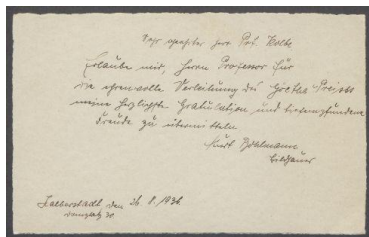 Sehr geehrter Herr Prof. Kolbe
Erlaube mir, Herrn Professor für
die ehrenvolle Verleihung des Goethe Preises
meine herzlichste Gratulation, und tiefempfundene
Freude zu übermitteln
Kurt Bohlmann
Bildhauer
Halberstadt den 26. 8. 1936.
Domplatz 30